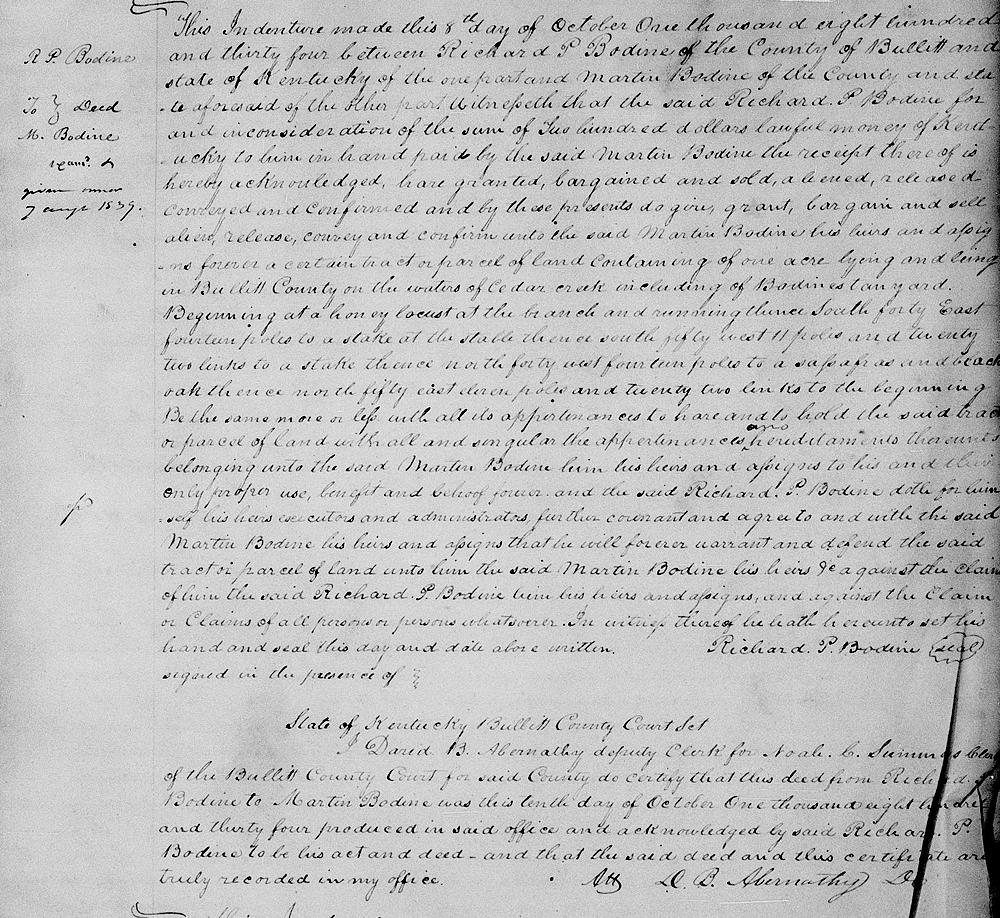 This Indenture made this 8th day of October One thousand eight hundred
R. P. Bodine
and thirty four between Richard P Bodine of the County of Bullitt and
state of Kentucky of the one part and Martin Bodine of the County and sta
To } Deed
-te aforesaid of the other part Witnesseth that the said Richard. P. Bodine for
M. Bodine
and in consideration of the sum of Two hundred dollars lawful money of Kent-
Exam.d &
-ucky to him in hand paid by the said Martin Bodine the receipt thereof is
given
hereby acknowledged, have granted, bargained and sold, aliened, released
7 augt 1839.
conveyed and confirmed and by these presents do give, grant, bargain and sell
alien, release, convey and confirm unto the said Martin Bodine his heirs and assig
-ns forever a certain tract or parcel of land containing of one acre lying and being
in Bullitt County on the waters of Cedar creek including of Bodines tanyard.
Beginning at a honey locust at the branch and running thence South forty East
fourteen poles to a stake at the stable thence south fifty west 11 poles and twenty
two links to a stake thence north forty west fourteen poles to a sassafras and black
oak thence north fifty east eleven poles and twenty two links to the beginning
Be the same more or less with all its appertinances to have and to hold the said tract
or parcel of land with all and singular the appertinances, and hereditaments thereunto
belonging unto the said Martin Bodine him his heirs and assigns to his and their
only proper use, benefit and behoof forever. and the said Richard. P. Bodine doth for him
-self his heirs executors and administrators, further covenant and agree to and with the said
Martin Bodine his heirs and assigns that he will forever warrant and defend the said
tract or parcel of land unto him the said Martin Bodine his heirs &c against the claim
of him the said Richard. P. Bodine him his heirs and assigns, and against the Claim
or Claims of all person or persons whatsoever. In witness thereof he hath hereunto set his
hand and seal this day and date above written. Richard. P. Bodine (seal)
signed in the presence of }
State of Kentucky Bullitt County Court Sct
I David B. Abernathy deputy Clerk for Noah. C. Summers Clerk
of the Bullitt County Court for said County do certify that this deed from Richard. P.
Bodine to Martin Bodine was this tenth day of October One thousand eight hundred
and thirty four produced in said office and acknowledged by said Richard. P.
Bodine to be his act and deed - and that the said deed and this certificate are
truly recorded in my office. Att D. B. Abernathy Dc